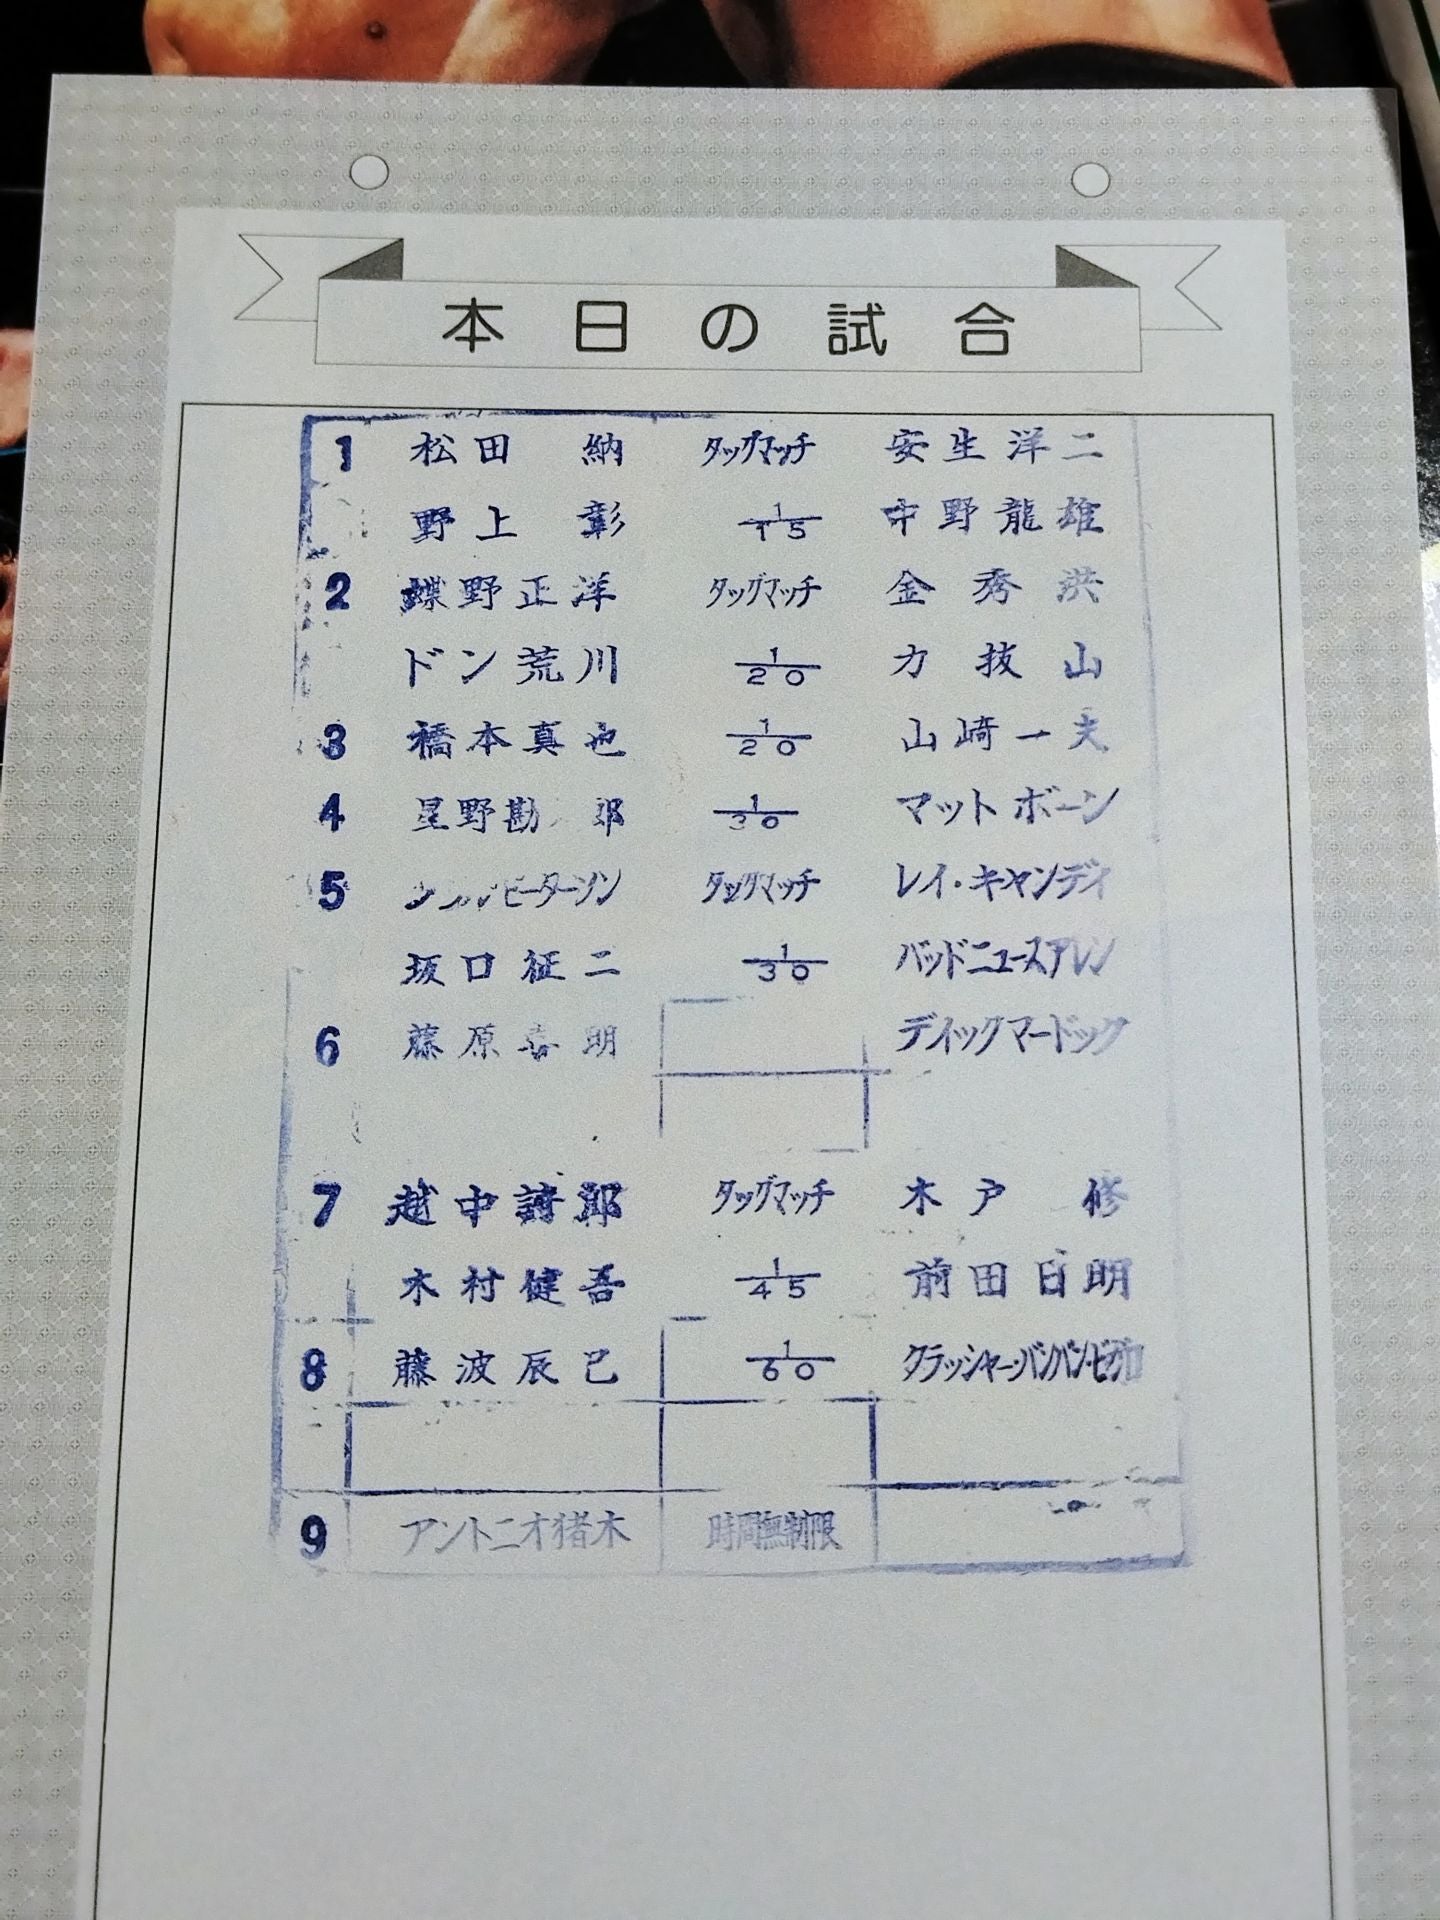 本日の試合
1 松田 納 タッグマッチ 安生洋二
野上 彰 1/15 中野龍雄
2 蝶野正洋 タッグマッチ 金秀洪
ドン荒川 1/20 力抜山
3 橋本真也 1/20 山崎一夫
4 星野勘 郎 1/30 マットボーン
5 ピーターソン タッグマッチ レイ・キャンディ
坂口征二 1/30 バッドニュースアレン
6 藤原喜明 ディックマードック
7 越中詩郎 タッグマッチ 木戸 修
木村健吾 1/45 前田日明
8 藤波辰巳 1/60 クラッシャー・バンバン・ビガロ
9 アントニオ猪木 時間無制限